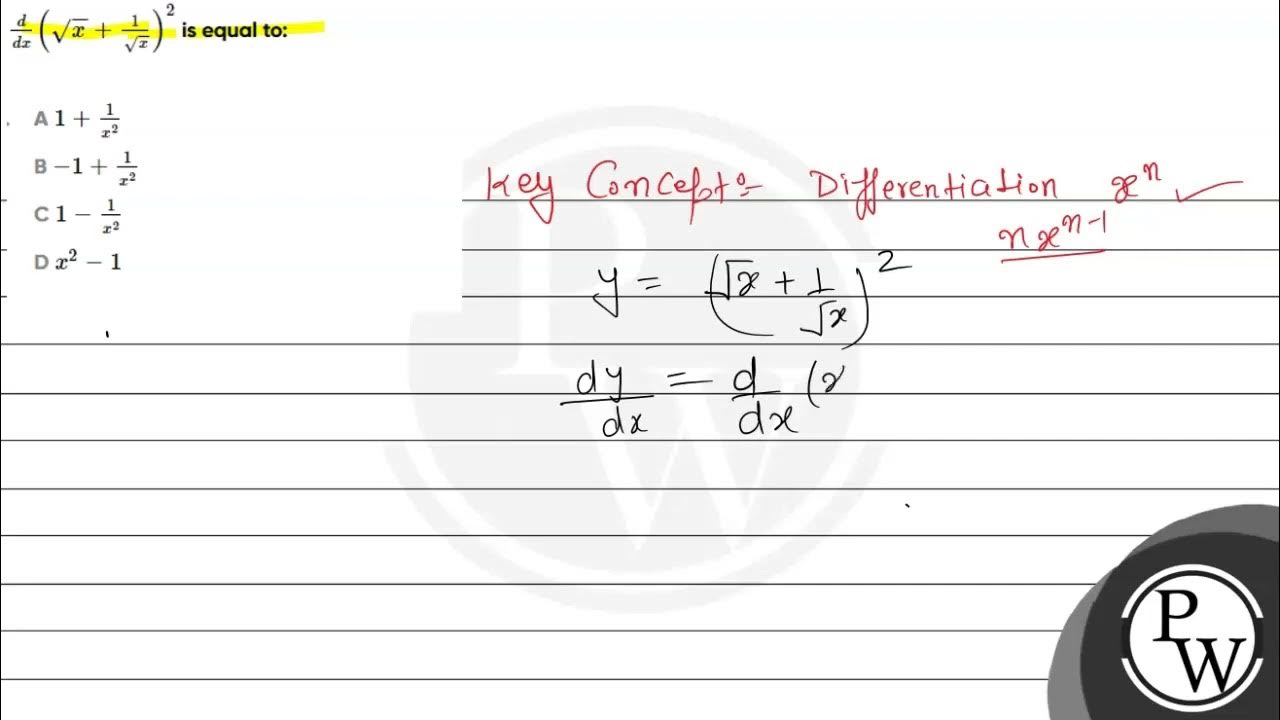 d/dx (√x + 1/√x)² is equal to:
A 1 + 1/x²
B −1 + 1/x²
C 1 − 1/x²
D x² − 1
Key Concept:- Differentiation xⁿ
nxⁿ⁻¹
y = (√x + 1/√x)²
dy/dx = d/dx (x
PW
PW